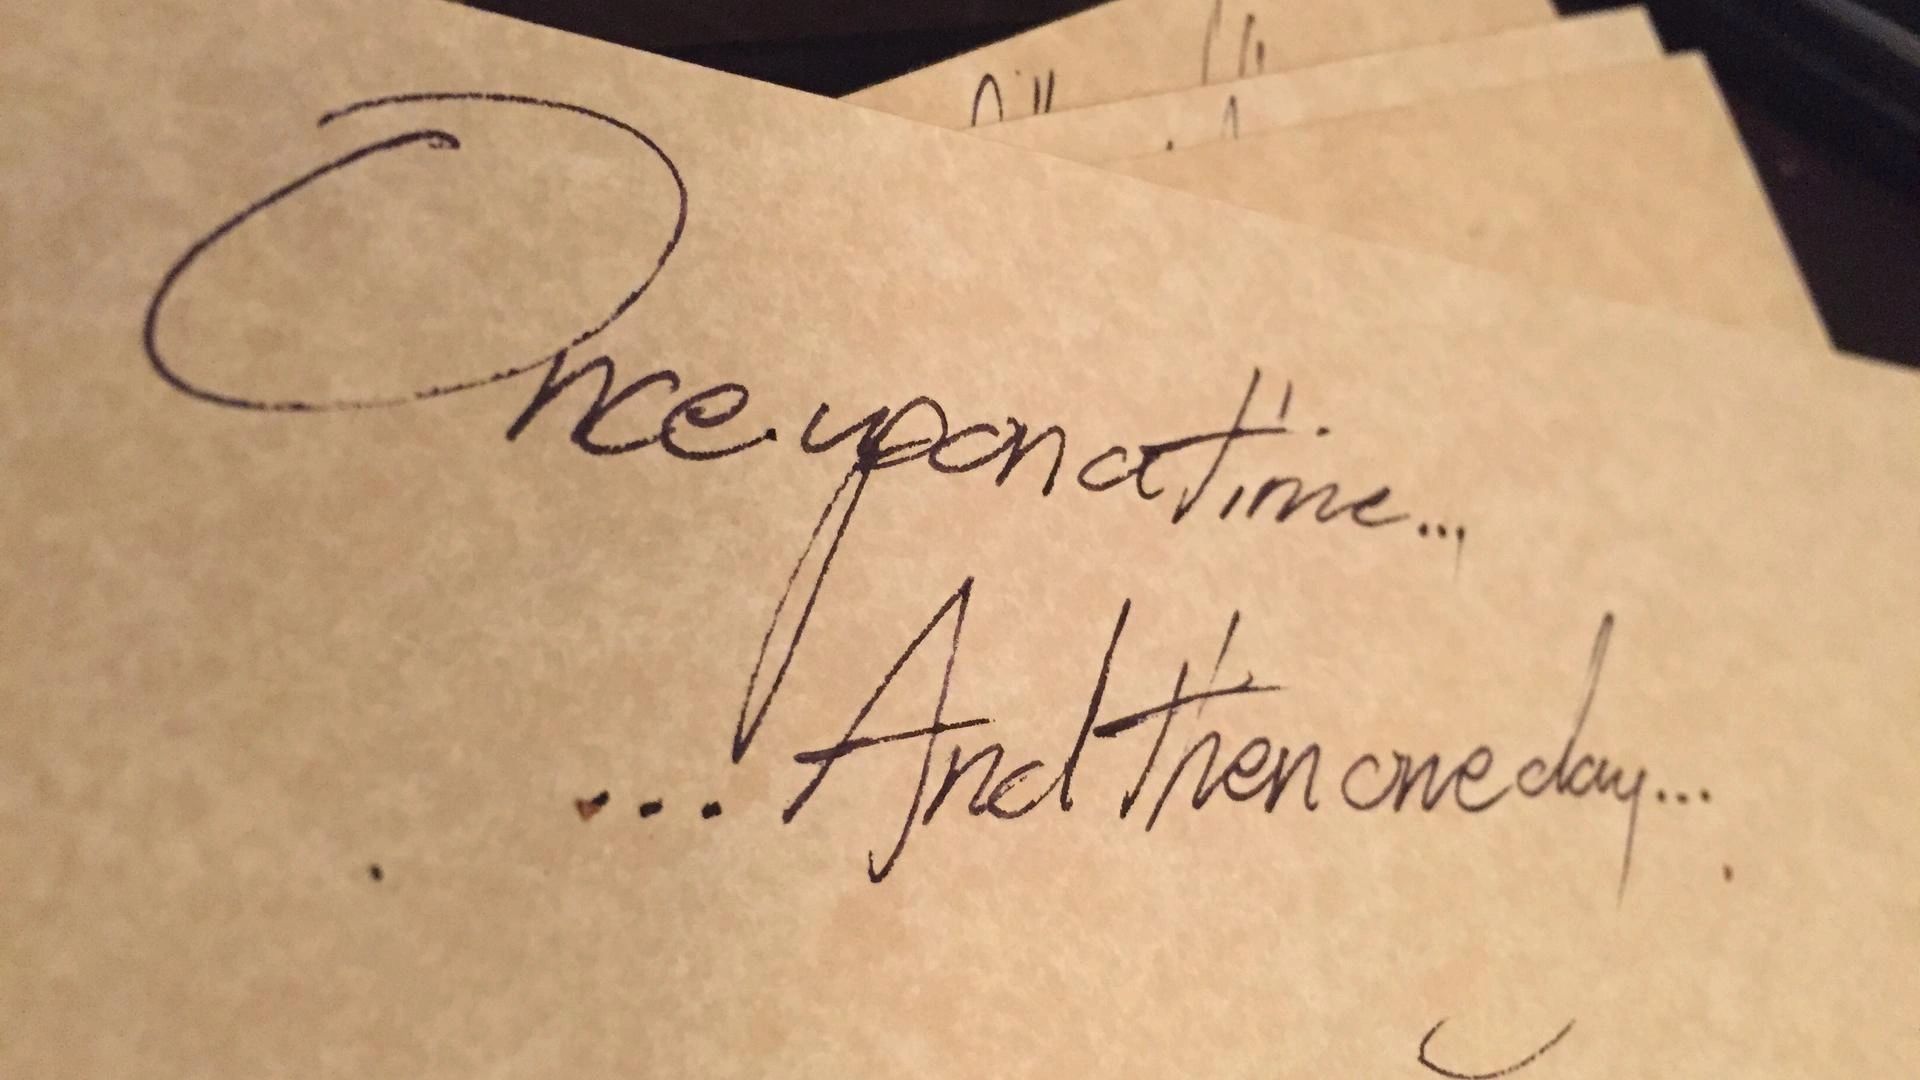 Once upon a time...
...And then one day...